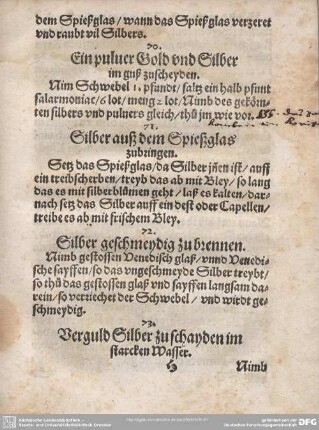 dem Spießglas / wann das Spießglas verzeret
vnd raubt vil Silbers.
70.
Ein puluer Gold vnd Silber
im guß zuscheyden.
Nim Schwebel 1. pfundt / saltz ein halb pfunt
salarmoniac / 6 lot / meng 2 lot / Nimb des gekörn-
ten silbers vnd puluers gleich / thů jm wie vor.
71.
Silber auß dem Spießglas
zubringen.
Setz das Spießglas / da Silber jnen ist / auff
ein treibscherben / treyb das ab mit Bley / so lang
das es mit silberblůmen geht / laß es kalten / dar-
nach setz das Silber auff ein test oder Capellen /
treibe es ab mit frischem Bley.
72.
Silber geschmeydig zu brennen.
Nimb gestossen Venedisch glaß / vnnd Venedi-
sche sayffen / so das vngeschmeyde Silber treybt /
so thů das gestossen glaß vnd sayffen langsam da-
rein / so verriechet der Schwebel / vnd wirdt ge-
schmeydig.
73.
Verguld Silber zu schayden im
starcken Wasser.
Nimb